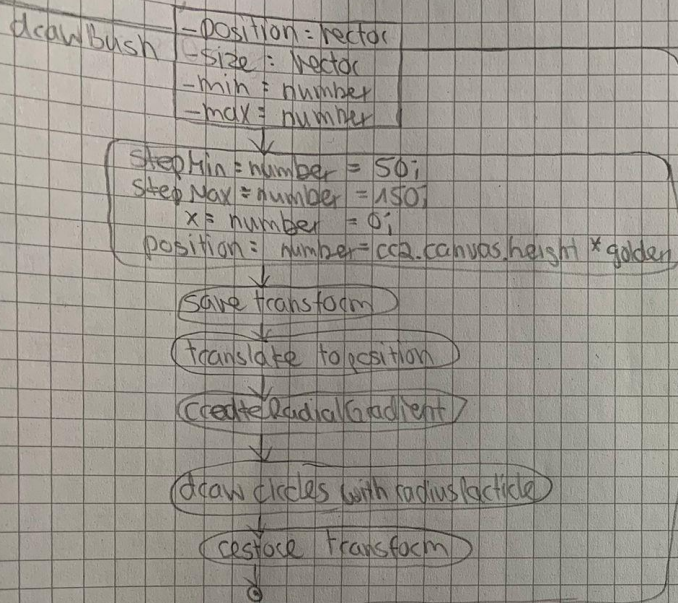 drawBush
-position: vector
-size: vector
-min: number
-max: number
stepMin: number = 50;
stepMax: number = 150;
x: number = 0;
position: number = crc2.canvas.height * golden
save transform
translate to position
createRadialGradient
draw circles with radiusParticle
restore transform